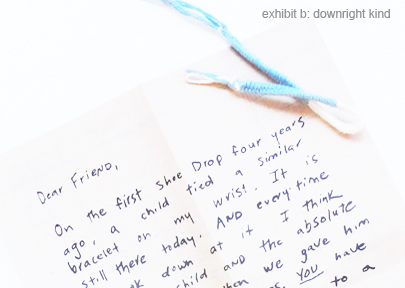 exhibit b: downright kind
Dear Friend,
On the first Shoe Drop four years
ago, a child tied a similar
bracelet on my wrist. It is
still there today. AND every time
down at it I think
child AND the absolute
when we gave him
YOU have
to a